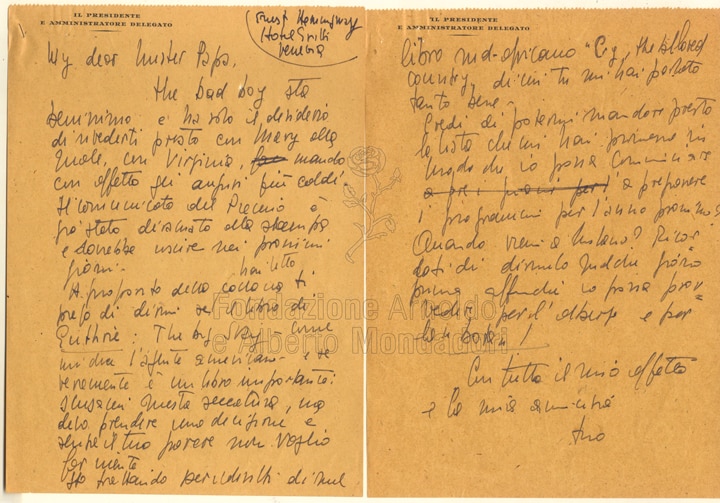 IL PRESIDENTE
E AMMINISTRATORE DELEGATO
Ernest Hemingway
Hotel Gritti
Venezia
My dear Mister Papa,
the bad boy sta
benissimo e ha solo il desiderio
di rivederti presto con Mary alla
quale, con Virginia, mando
con affetto gli auguri più caldi.
Il comunicato del Premio è
già stato diramato alla stampa
e dovrebbe uscire nei prossimi
giorni.
A proposito della collana ti
prego di dirmi se hai letto il libro di
Guthrie: The big Sky - come
mi dice l'agente americano - e se
veramente è un libro importante.
Scusami questa seccatura, ma
devo prendere una decisione e
senza il tuo parere non voglio
far niente
Sto trattando per i diritti di quel
IL PRESIDENTE
E AMMINISTRATORE DELEGATO
libro sud-africano "Cry, the beloved
country, di cui tu mi hai parlato
tanto bene -
Credi di potermi mandare presto
la lista che mi hai promesso in
modo che io possa cominciare
a preparare
i programmi per l'anno prossimo?
Quando vieni a Milano? Ricor
dati di dirmelo qualche giorno
prima affinché io possa prov
vedere per l'albergo e per
Con tutto il mio affetto
e la mia amicizia
tuo
Fondazione Arnoldo
e Alberto Mondadori